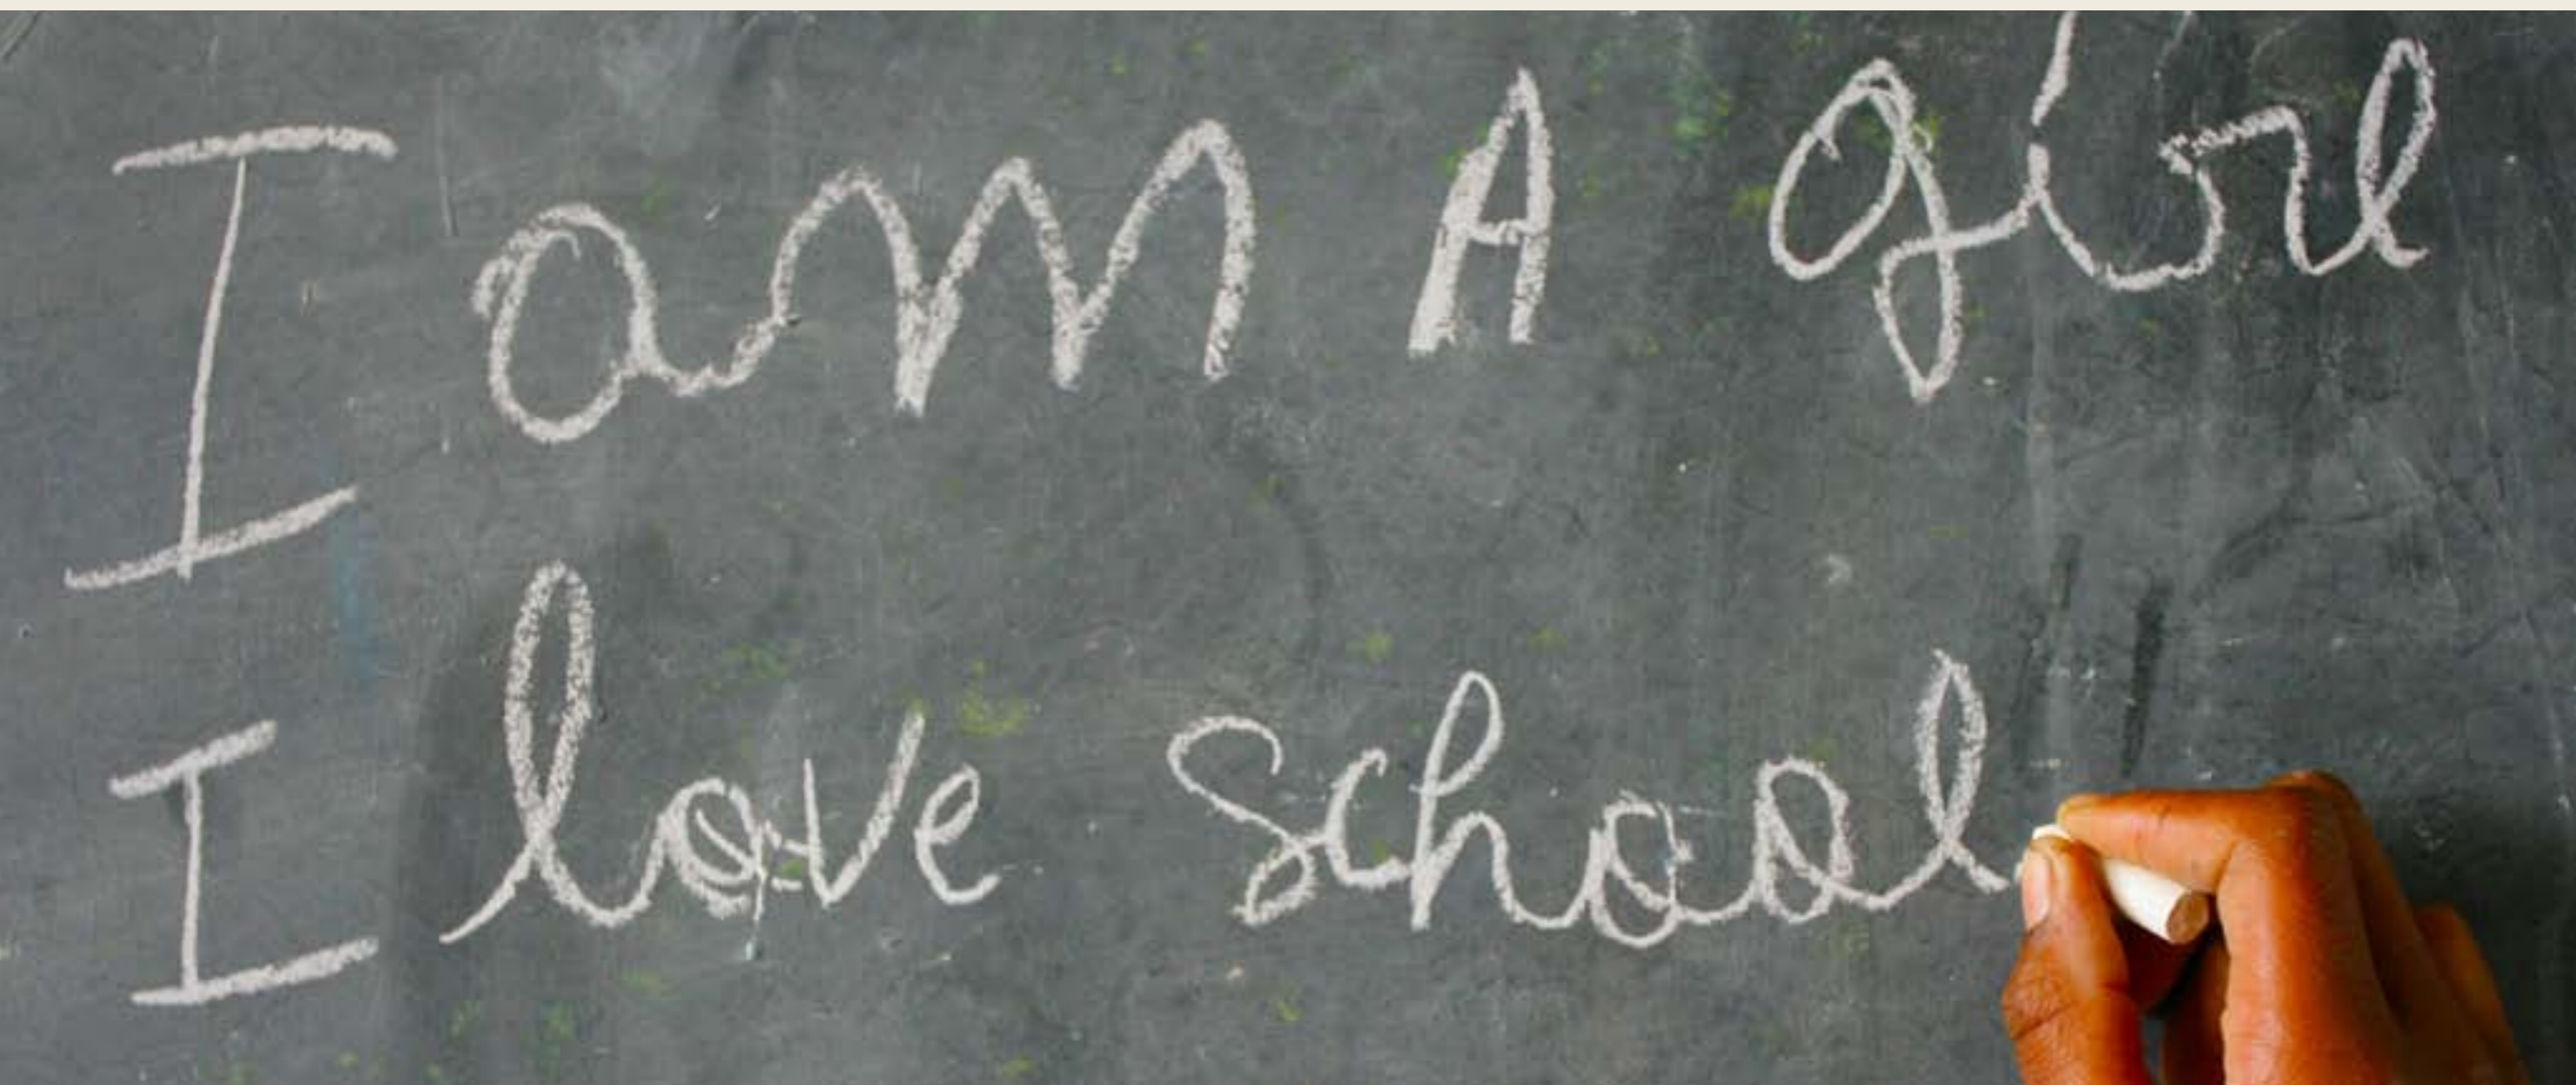 I am A girl
I love school